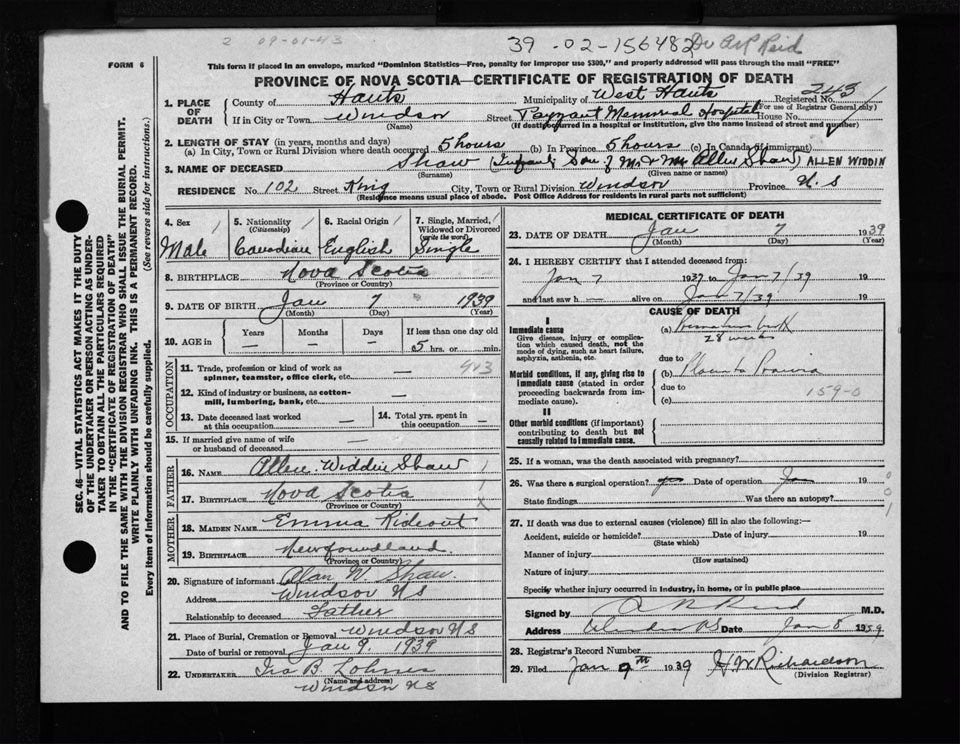 2 09-01-43
39 - 02 - 156482 Dr A R Reid
FORM 6
This form if placed in an envelope, marked "Dominion Statistics—Free, penalty for improper use $300," and properly addressed will pass through the mail "FREE"
PROVINCE OF NOVA SCOTIA—CERTIFICATE OF REGISTRATION OF DEATH
SEC. 46—VITAL STATISTICS ACT MAKES IT THE DUTY
OF THE UNDERTAKER OR PERSON ACTING AS UNDER-
TAKER TO OBTAIN ALL THE PARTICULARS REQUIRED
IN THE "CERTIFICATE OF REGISTRATION OF DEATH"
AND TO FILE THE SAME WITH THE DIVISION REGISTRAR WHO SHALL ISSUE THE BURIAL PERMIT.
WRITE PLAINLY WITH UNFADING INK. THIS IS A PERMANENT RECORD.
Every item of information should be carefully supplied. (See reverse side for instructions.)
1. PLACE OF DEATH
County of Hants Municipality of West Hants Registered No. 243
(For use of Registrar General only)
If in City or Town Windsor Street Payzant Memorial Hospital House No.
(Name) (If death occurred in a hospital or institution, give the name instead of street and number)
2. LENGTH OF STAY (in years, months and days)
(a) In City, Town or Rural Division where death occurred 5 hours (b) In Province 5 hours (c) In Canada (if immigrant)
3. NAME OF DECEASED Shaw (Infant Son of Mr & Mrs Allen Shaw) ALLEN WIDDIN
(Surname) (Given name or names)
RESIDENCE No. 102 Street King City, Town or Rural Division Windsor Province N.S
(Residence means usual place of abode. Post Office Address for residents in rural parts not sufficient)
4. Sex Male
5. Nationality (Citizenship) Canadian
6. Racial Origin English
7. Single, Married, Widowed or Divorced (write the word) Single
8. BIRTHPLACE Nova Scotia
(Province or Country)
9. DATE OF BIRTH Jan 7 1939
(Month) (Day) (Year)
10. AGE in Years — Months — Days — If less than one day old 5 hrs. or min.
OCCUPATION
11. Trade, profession or kind of work as spinner, teamster, office clerk, etc. —
12. Kind of industry or business, as cotton-mill, lumbering, bank, etc. —
13. Date deceased last worked at this occupation —
14. Total yrs. spent in this occupation —
15. If married give name of wife or husband of deceased
FATHER
16. NAME Allen Widdin Shaw
17. BIRTHPLACE Nova Scotia
(Province or Country)
MOTHER
18. MAIDEN NAME Emma Rideout
19. BIRTHPLACE Newfoundland
(Province or Country)
20. Signature of informant Alan W Shaw
Address Windsor NS
Relationship to deceased Father
21. Place of Burial, Cremation or Removal Windsor NS
Date of burial or removal Jan 9. 1939
22. UNDERTAKER Ira B Lohnes
(Name and address)
Windsor NS
MEDICAL CERTIFICATE OF DEATH
23. DATE OF DEATH Jan 7 1939
(Month) (Day) (Year)
24. I HEREBY CERTIFY that I attended deceased from:
Jan 7 1939 to Jan 7/39
and last saw h— alive on Jan 7/39
CAUSE OF DEATH
I
Immediate cause
Give disease, injury or complication which caused death, not the mode of dying, such as heart failure, asphyxia, asthenia, etc.
(a) Premature birth
28 weeks
due to
Morbid conditions, if any, giving rise to immediate cause (stated in order proceeding backwards from immediate cause).
(b) Placenta Praevia
due to
(c)
159-0
II
Other morbid conditions (if important) contributing to death but not causally related to immediate cause.
25. If a woman, was the death associated with pregnancy?
26. Was there a surgical operation? Date of operation 19
State findings Was there an autopsy?
27. If death was due to external causes (violence) fill in also the following:—
Accident, suicide or homicide? Date of injury 19
(State which)
Manner of injury
(How sustained)
Nature of injury
Specify whether injury occurred in industry, in home, or in public place
Signed by A R Reid M.D.
Address Windsor NS Date Jan 8 1939
28. Registrar's Record Number
29. Filed Jan 9th 1939 H W Richardson
(Division Registrar)